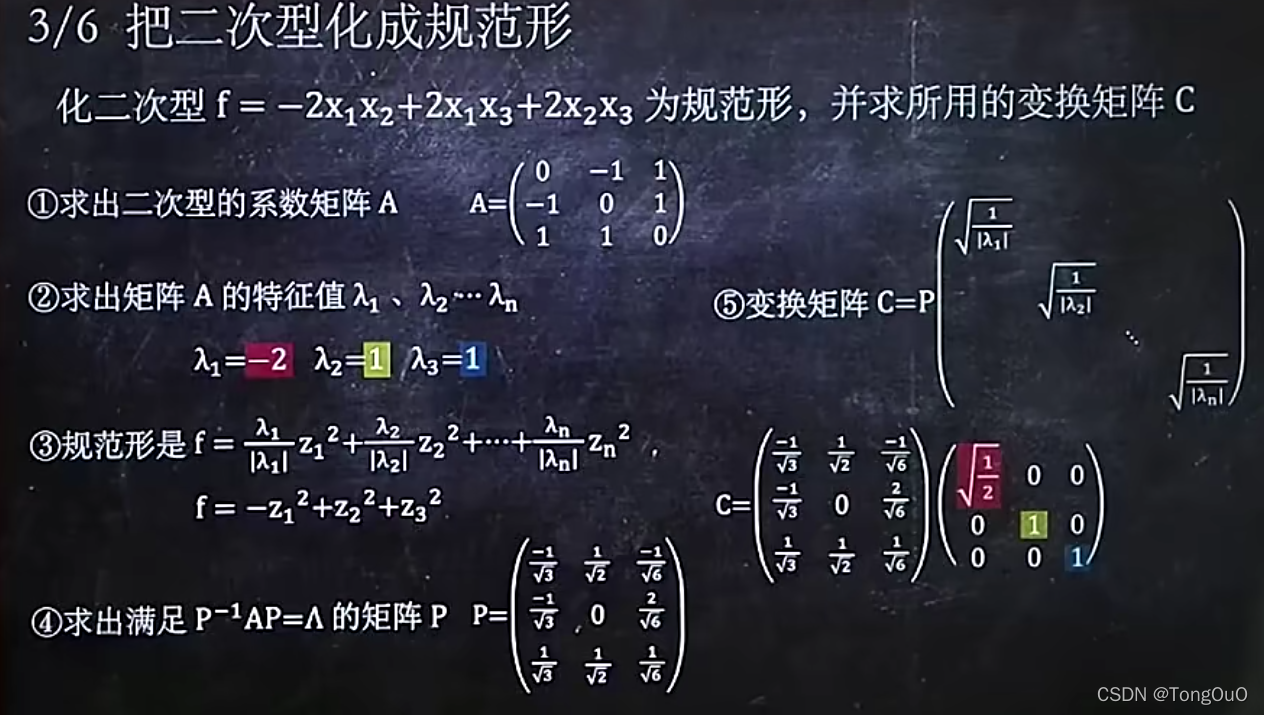 3/6 把二次型化成规范形
化二次型 f = −2x₁x₂+2x₁x₃+2x₂x₃ 为规范形，并求所用的变换矩阵 C
①求出二次型的系数矩阵 A A=
0 −1 1
−1 0 1
1 1 0
②求出矩阵 A 的特征值 λ₁ 、λ₂··· λₙ
λ₁=−2 λ₂=1 λ₃=1
③规范形是 f = λ₁/|λ₁| z₁²+λ₂/|λ₂| z₂²+···+λₙ/|λₙ| zₙ² ，
f = −z₁²+z₂²+z₃²
④求出满足 P⁻¹AP=Λ 的矩阵 P P=
−1/√3 1/√2 −1/√6
−1/√3 0 2/√6
1/√3 1/√2 1/√6
⑤变换矩阵 C=P
√(1/|λ₁|)
√(1/|λ₂|)
⋱
√(1/|λₙ|)
C=
−1/√3 1/√2 −1/√6 √(1/2) 0 0
−1/√3 0 2/√6 0 1 0
1/√3 1/√2 1/√6 0 0 1
CSDN @TongOuO